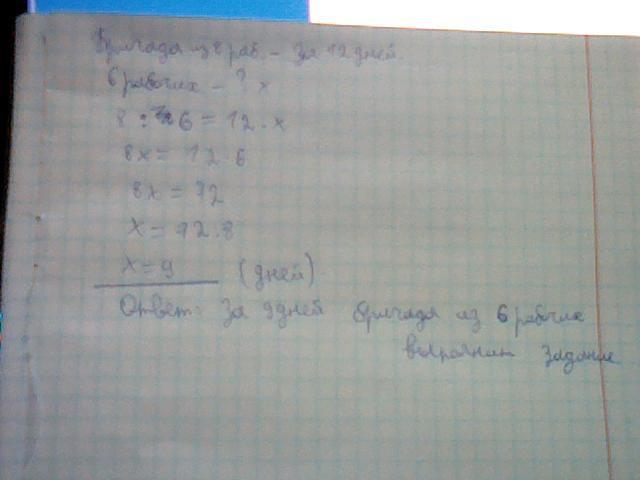 Бригада из 8 раб. - за 12 дней.
6 рабочих - ? x
8 : 6 = 12 . x
8x = 12 . 6
8x = 72
x = 72 . 8
x = 9 (дней)
Ответ: за 9 дней бригада из 6 рабочих
выполнит задание